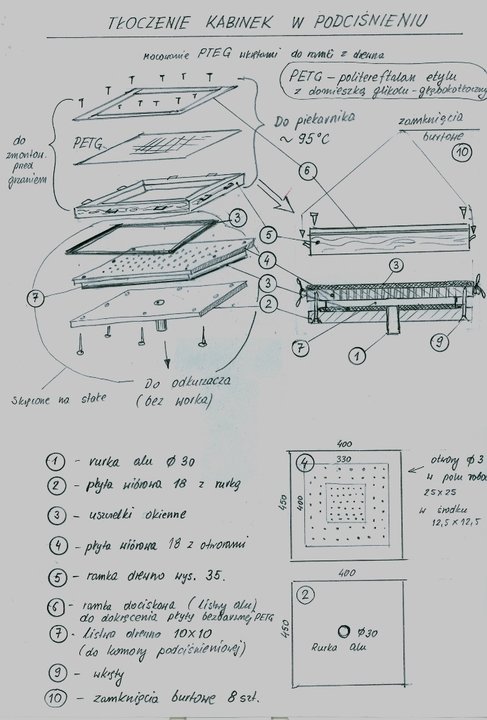 TŁOCZENIE KABINEK W PODCIŚNIENIU
mocowanie PTEG wkrętami do ramki z drewna
PETG - politereftalan etylu
z domieszką glikolu - głębokotłoczny
do
zmontow.
przed
grzaniem
PETG
Do piekarnika
~ 95°C
zamknięcia
burtowe
10
6
5
3
4
3
2
7
7
1
9
Skręcone na stałe
Do odkurzacza
(bez worka)
1 - rurka alu Ø 30
2 - płyta wiórowa 18 z rurką
3 - uszczelki okienne
4 - płyta wiórowa 18 z otworami
5 - ramka drewno wys. 35.
6 - ramka dociskowa (listwy alu)
do dokręcenia płyty bezbarwnej PETG
7 - listwa drewno 10x10
(do komory podciśnieniowej)
9 - wkręty
10 - zamknięcia burtowe 8 szt.
400
330
4
450
400
otwory Ø 3
w polu robo
25 x 25
w środku
12,5 x 12,5
400
2
450
Ø 30
Rurka alu